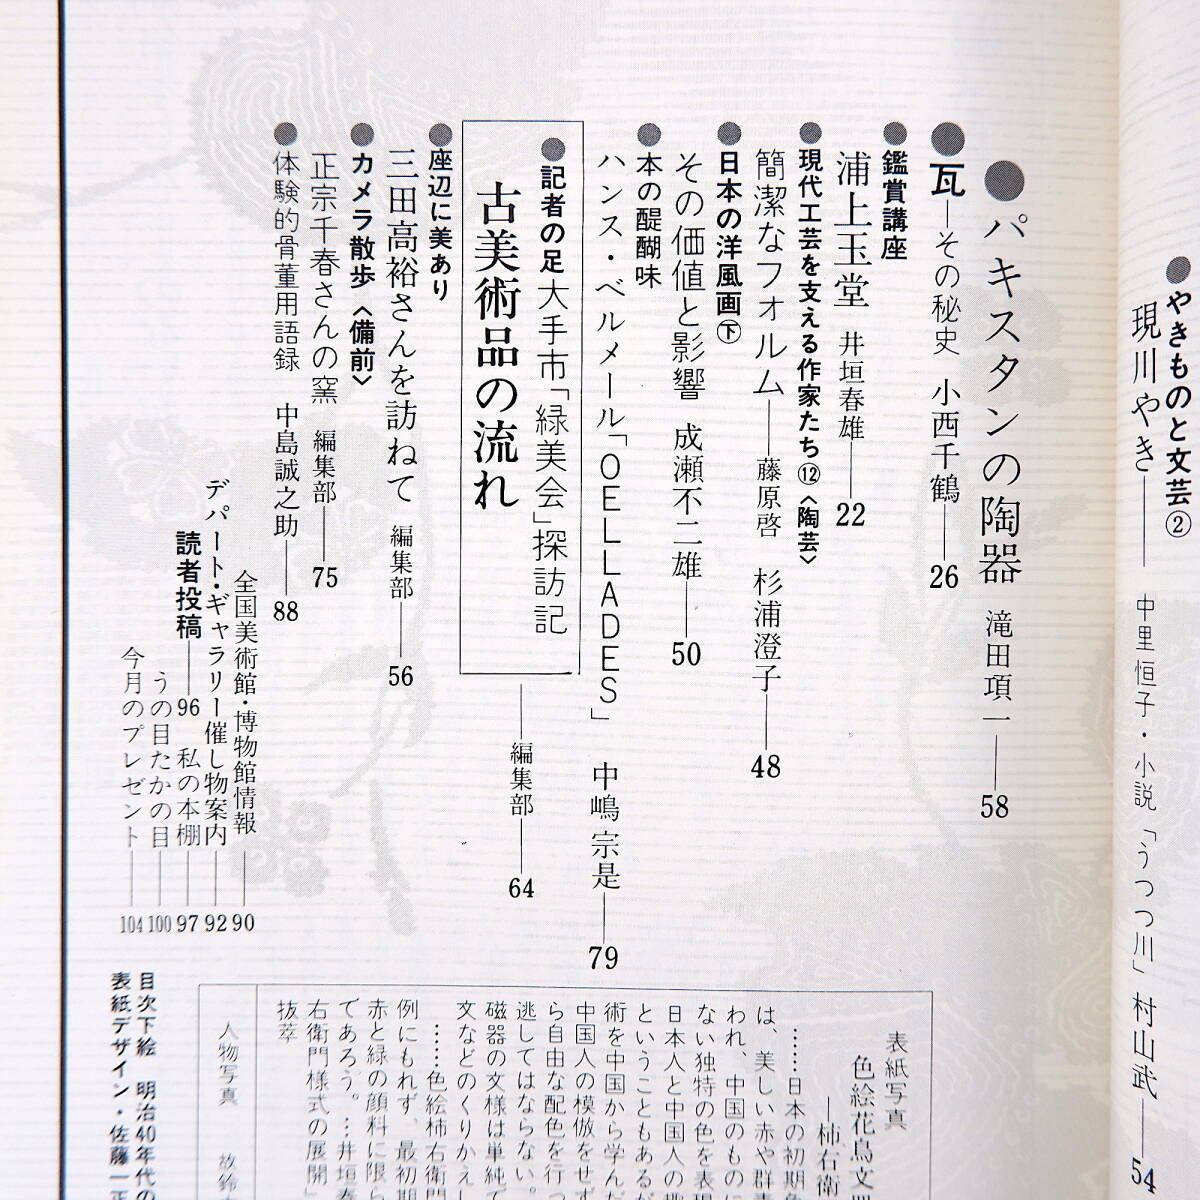 ●やきものと文芸②
現川やき―― 中里恒子・小説「うつつ川」 村山武――54
●パキスタンの陶器 滝田項一――58
●瓦―その秘史 小西千鶴――26
●鑑賞講座
浦上玉堂 井垣春雄――22
●現代工芸を支える作家たち⑫〈陶芸〉
簡潔なフォルム――藤原啓 杉浦澄子――48
●日本の洋風画㊦
その価値と影響 成瀬不二雄――50
●本の醍醐味
ハンス・ベルメール「OELLADES」 中嶋宗是――79
●記者の足 大手市「緑美会」探訪記
古美術品の流れ――編集部――64
●座辺に美あり
三田高裕さんを訪ねて 編集部――56
●カメラ散歩〈備前〉
正宗千春さんの窯 編集部――75
●体験的骨董用語録 中島誠之助――88
全国美術館・博物館情報――90
デパート・ギャラリー催し物案内――92
読者投稿――96 私の本棚――97
うの目たかの目――100
今月のプレゼント――104
表紙写真
色絵花鳥文
―柿右衛
……日本の初期
は、美しい赤や群青
われ、中国のものに
ない独特の色を表現
日本人と中国人の
ということもあるが
術を中国から学んだ
中国人の模倣をせず
ら自由な配色を行っ
逃してはならない。
磁器の文様は単純で
文などのくりかえし
……色絵柿右衛門
例にもれず、最初期
赤と緑の顔料に限ら
であろう。…井垣春
右衛門様式の展開」
抜萃
人物写真
目次下絵 明治40年代の
表紙デザイン・佐藤一正